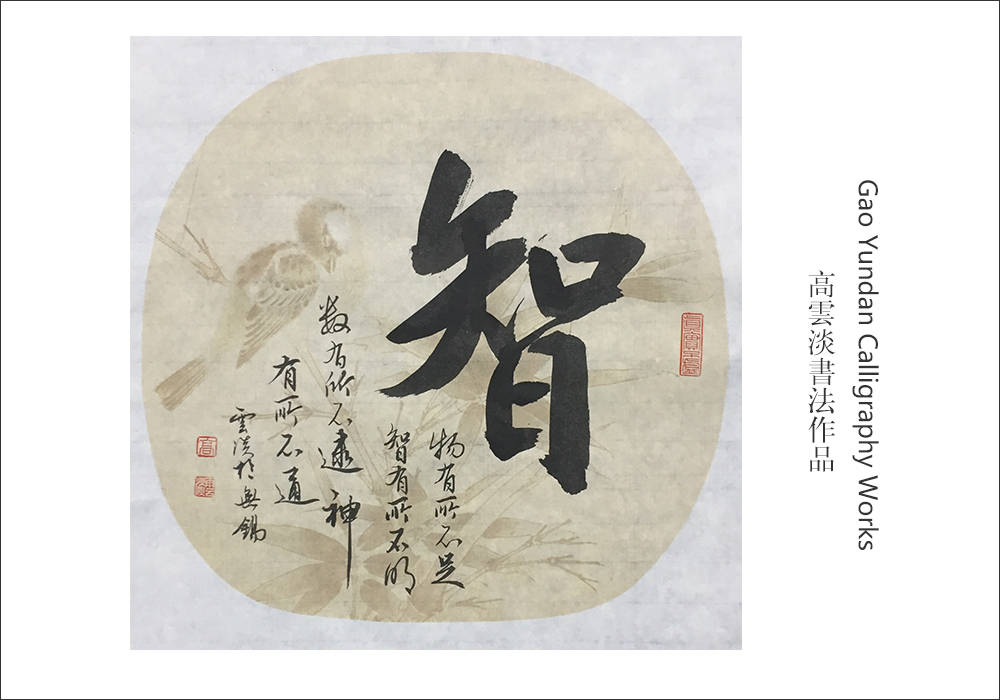 Gao Yundan Calligraphy Works
高雲淡書法作品
智
物有所不足
智有所不明
数有所不逮神
有所不通
雲淡於無錫
高